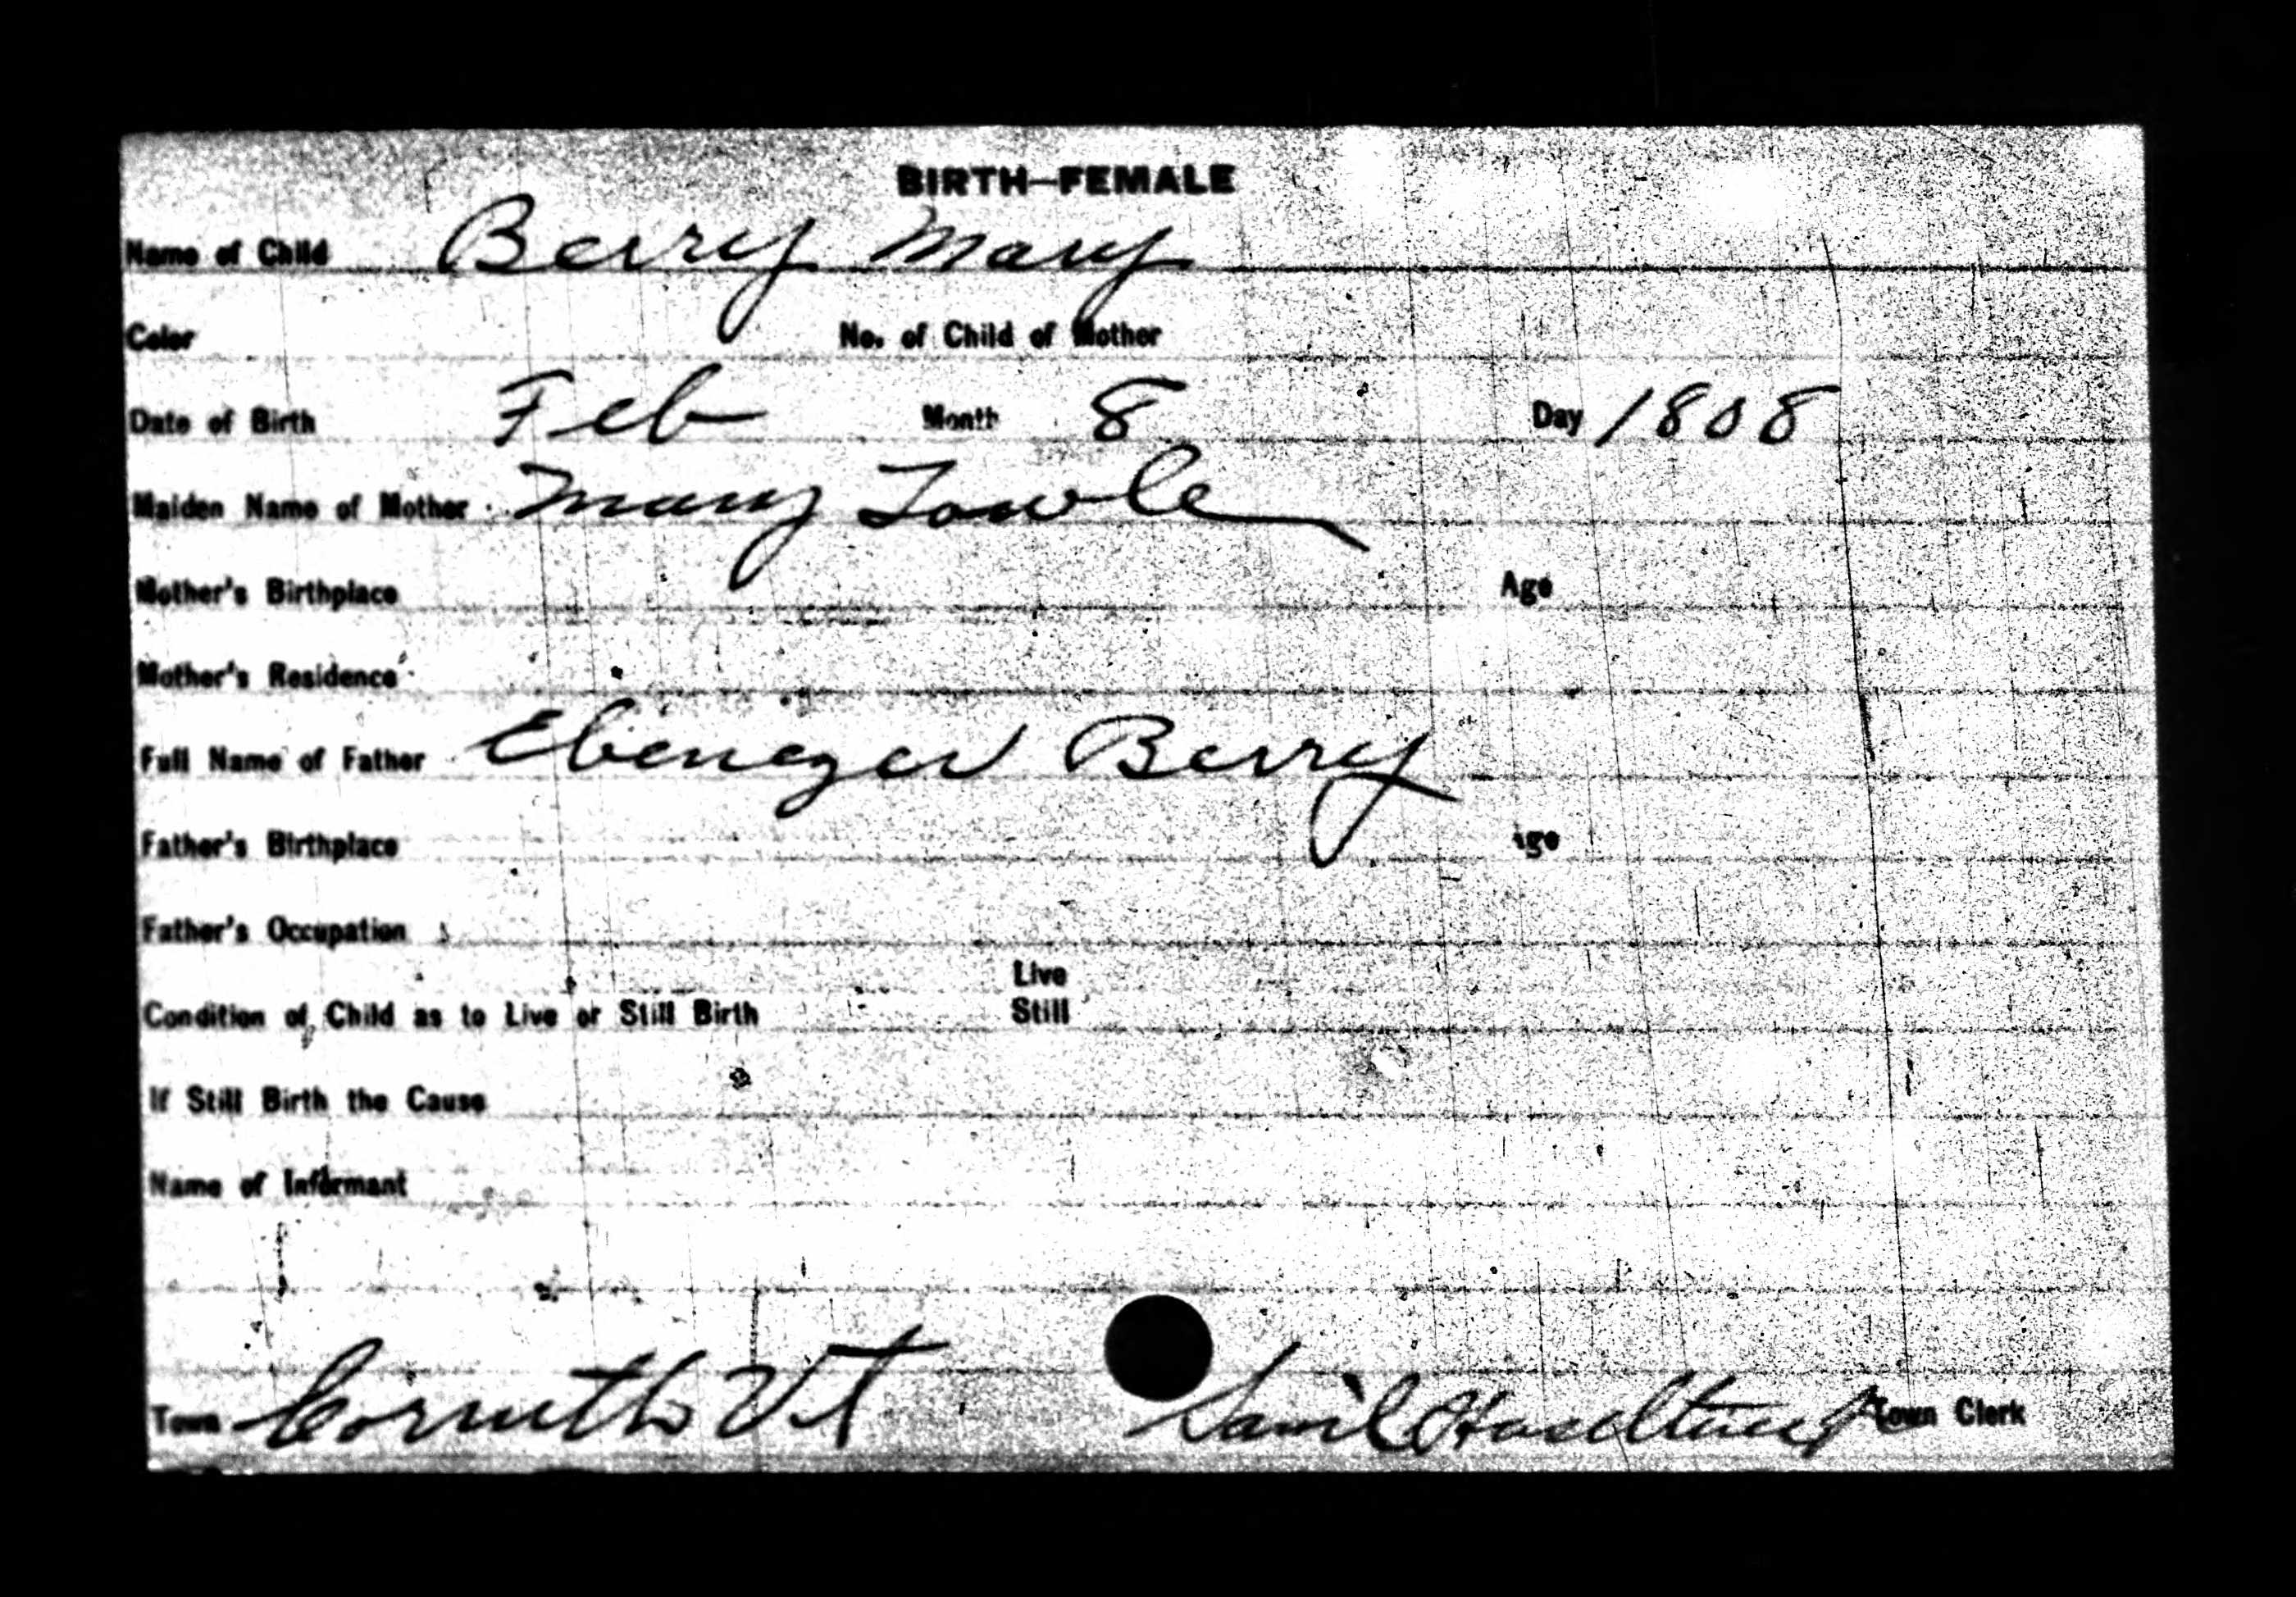 BIRTH—FEMALE
Name of Child Berry Mary
Color No. of Child of Mother
Date of Birth Feb Month 8 Day 1808
Maiden Name of Mother Mary Towle
Mother's Birthplace Age
Mother's Residence
Full Name of Father Ebenezer Berry
Father's Birthplace Age
Father's Occupation
Live
Condition of Child as to Live or Still Birth Still
If Still Birth the Cause
Name of Informant
Town Corinth Vt Town Clerk